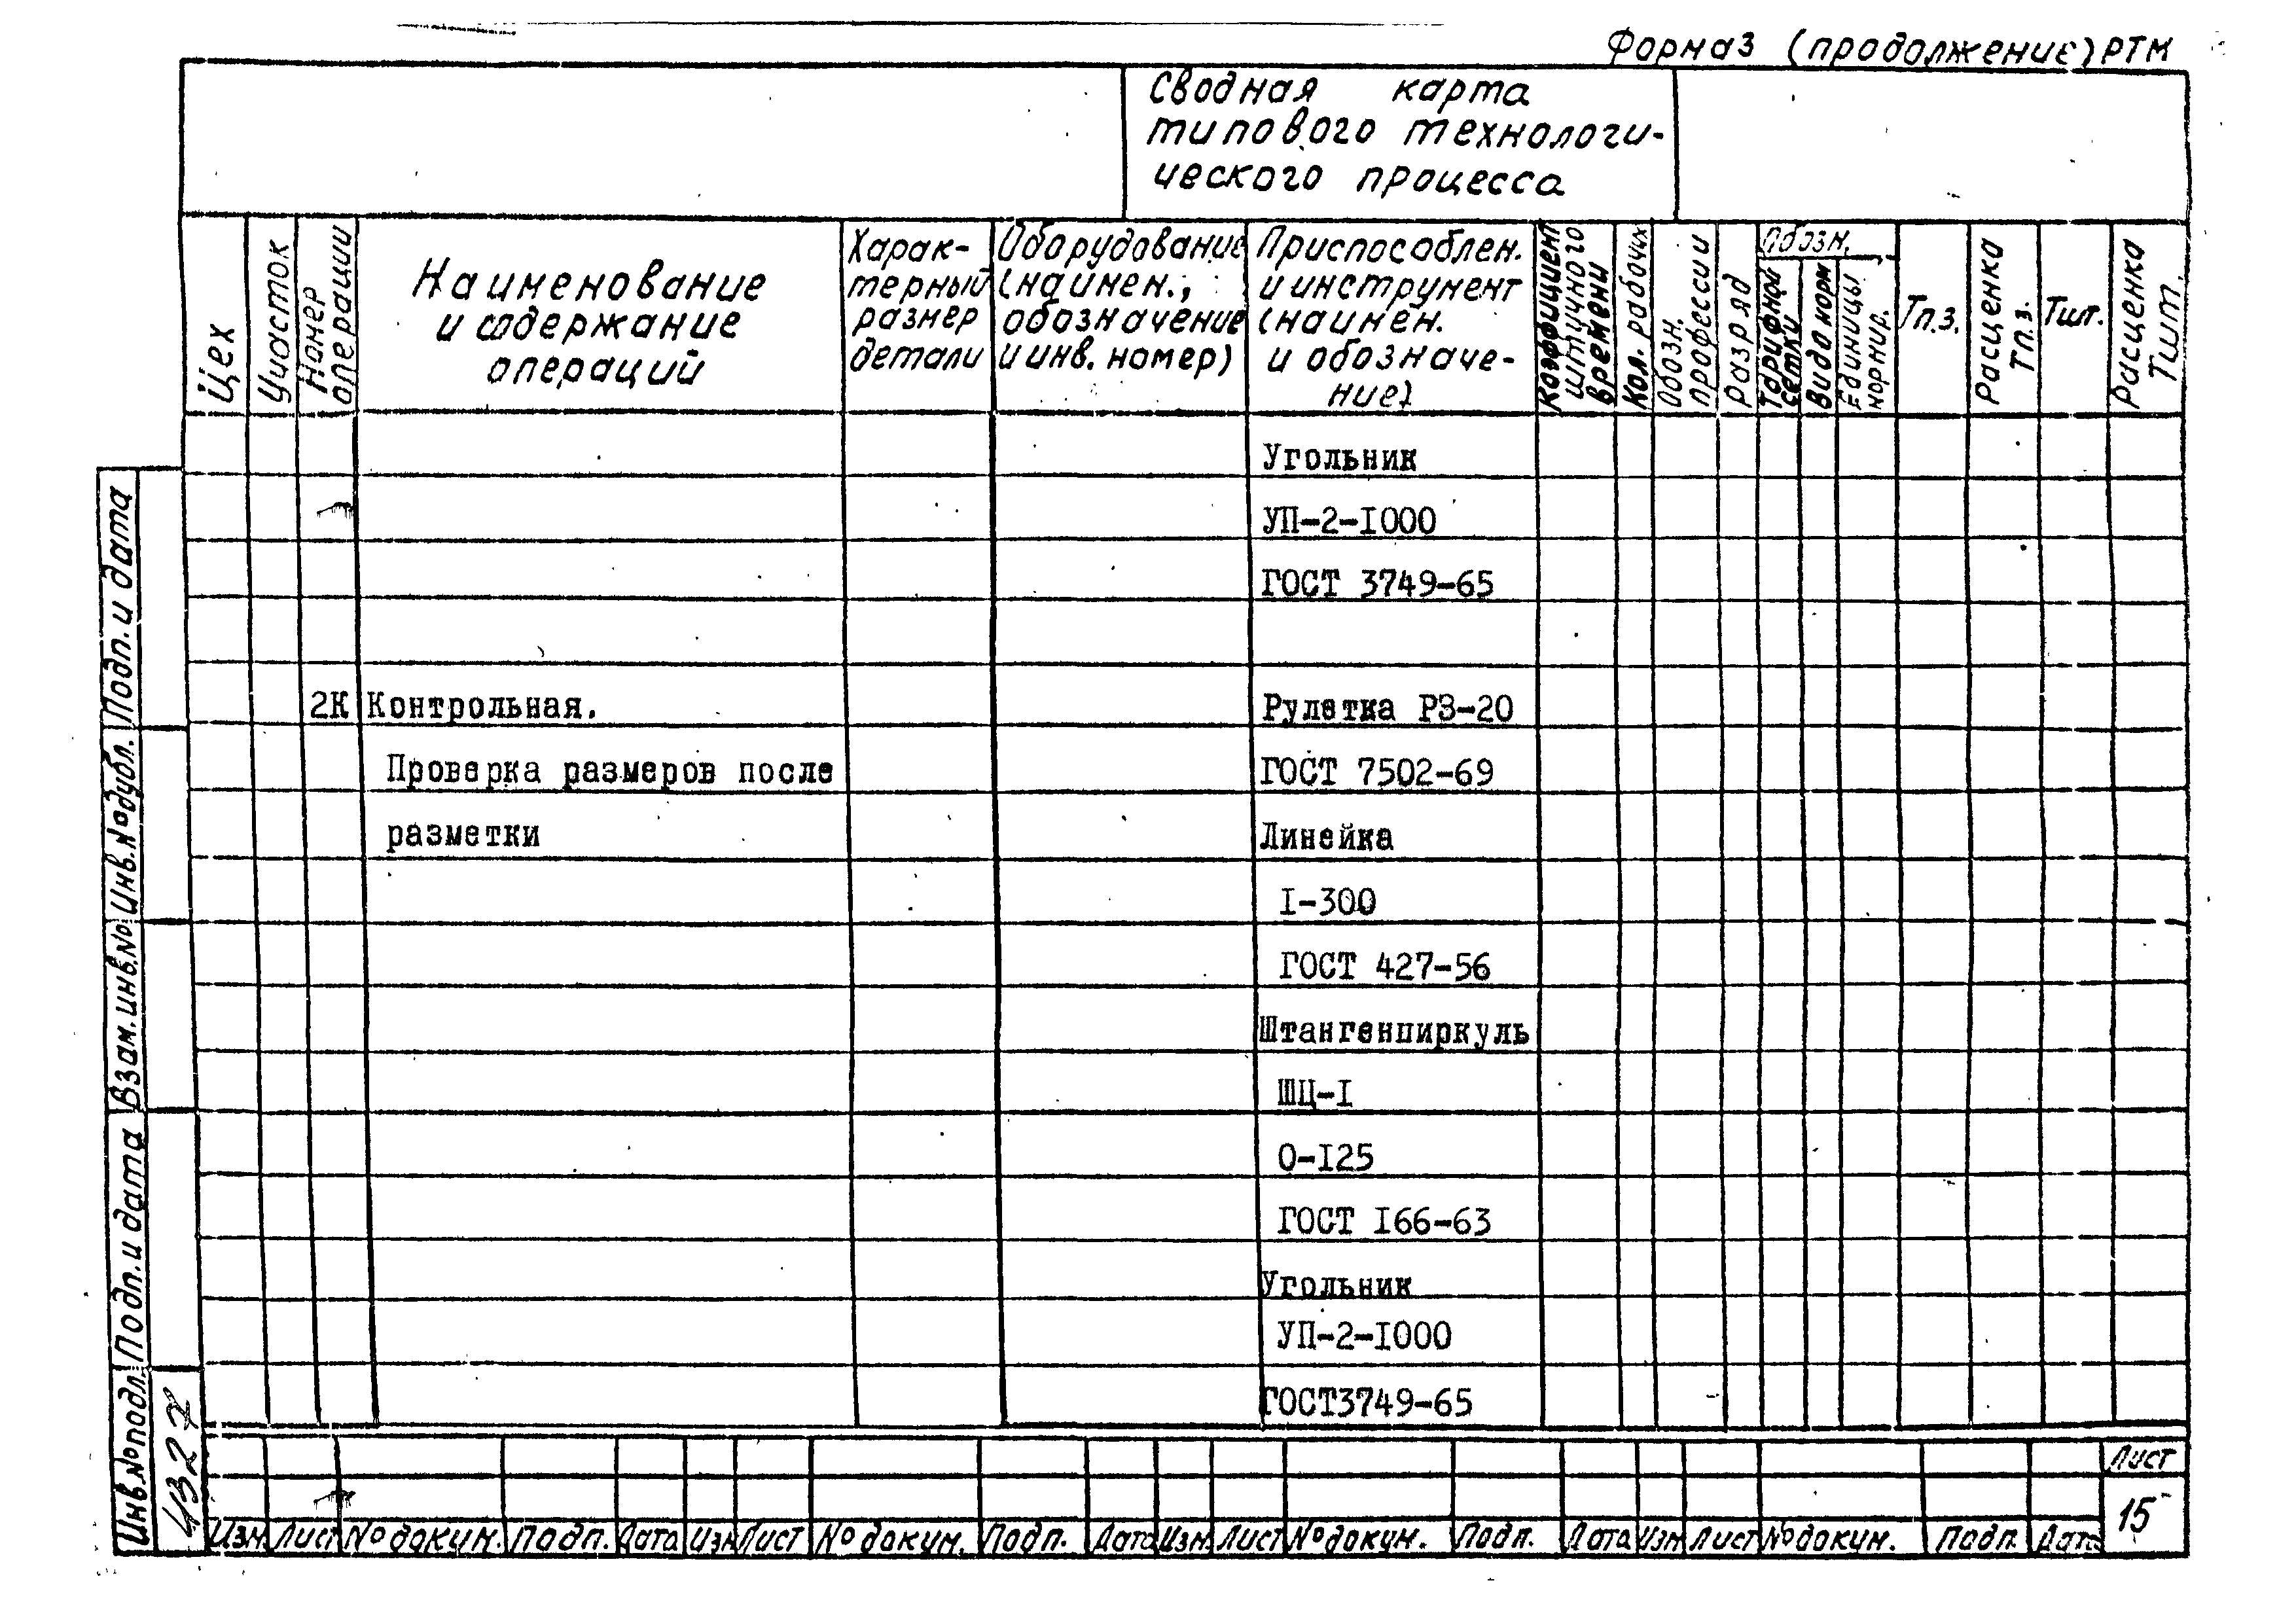 Форма3 (продолжение) РТМ
Сводная карта
типового технологи-
ческого процесса
Цех
Участок
Номер
операции
Наименование
и содержание
операций
Харак-
терный
размер
детали
Оборудование
(наимен.,
обозначение
и инв. номер)
Приспособлен.
и инструмент
(наимен.
и обозначе-
ние)
Коэффициент
штучного
времени
Кол. рабочих
Обозн.
профессии
Разряд
Обозн.
Тарифной
сетки
Вида норм
Единицы
нормир.
Тп.з.
Расценка
Тп.з.
Тшт.
Расценка
Тшт.
Угольник
УП-2-I000
ГОСТ 3749-65
2К Контрольная. Рулетка РЗ-20
Проверка размеров после ГОСТ 7502-69
разметки Линейка
I-300
ГОСТ 427-56
Штангенциркуль
ШЦ-I
0-I25
ГОСТ I66-63
Угольник
УП-2-I000
ГОСТ3749-65
Подп. и дата
Инв.№дубл.
Взам.инв.№
Подп. и дата
Инв.№подл.
4327
Лист
15
Изм Лист № докум. Подп. Дата Изм Лист № докум. Подп. Дата Изм. Лист № докум. Подп. Дата Изм Лист № докум. Подп. Дата